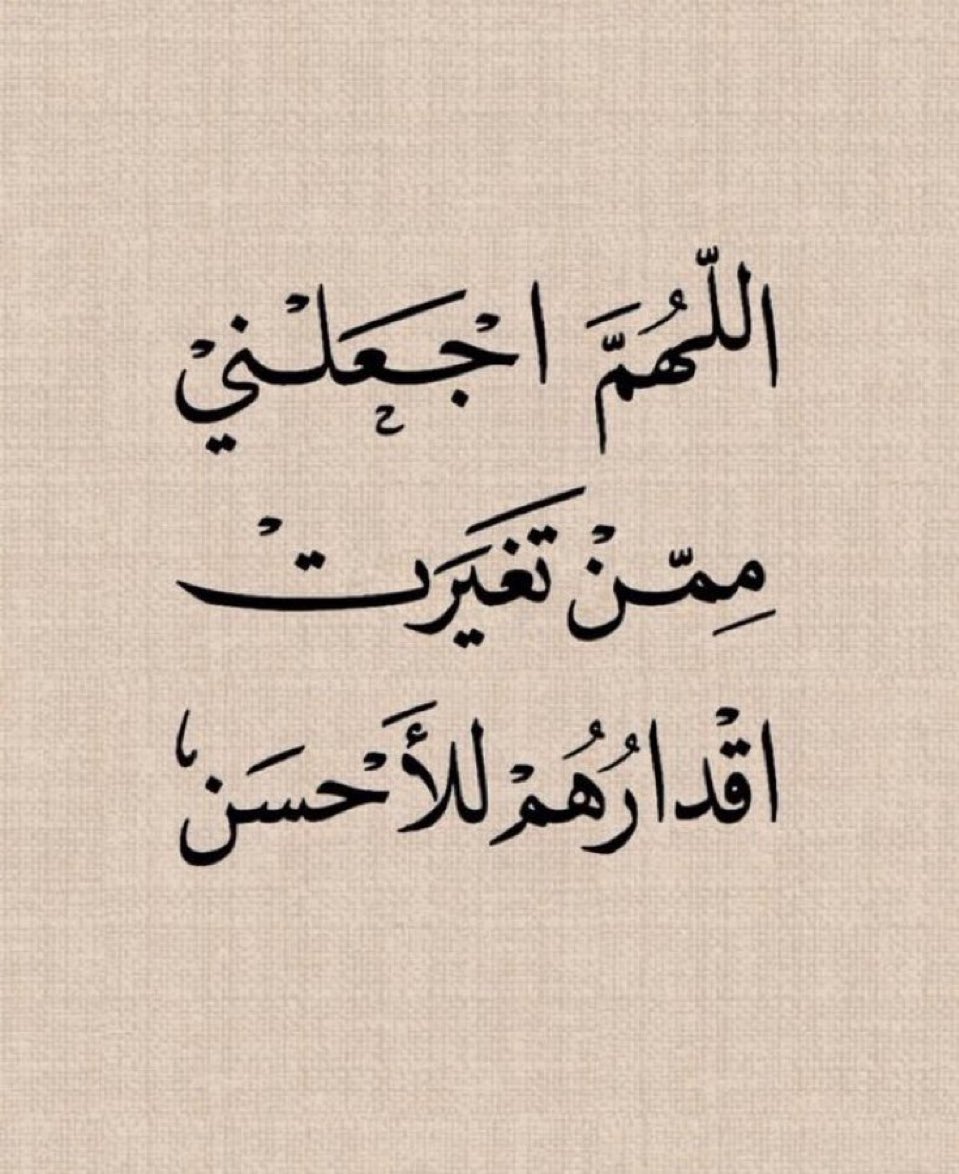 اللّهُمَّ اجْعَلْنيْ
مِمّنْ تَغيَرَتْ
اقْدارُهُمْ للأَحْسَن